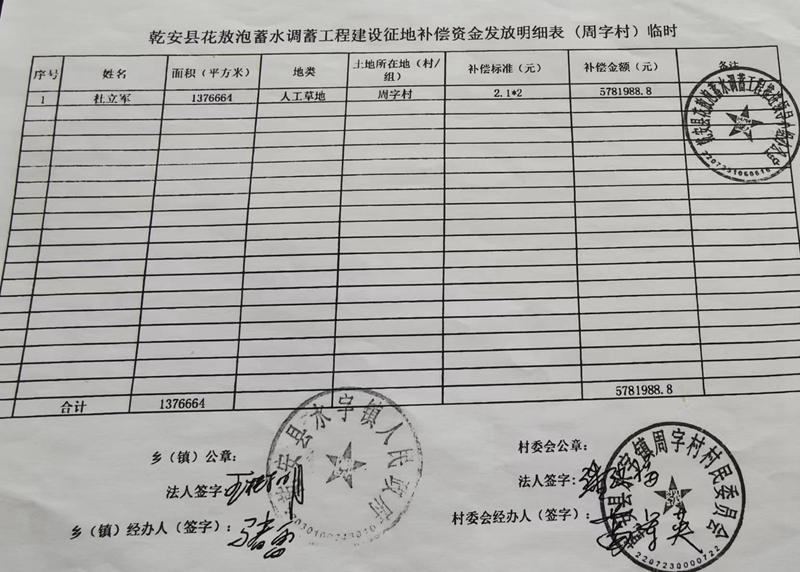 乾安县花敖泡蓄水调蓄工程建设征地补偿资金发放明细表（周字村）临时
序号 姓名 面积（平方米） 地类 土地所在地（村/组） 补偿标准（元） 补偿金额（元） 备注
1 杜立军 1376664 人工草地 周字村 2.1*2 5781988.8
合计 1376664 5781988.8
乡（镇）公章：
村委会公章：
法人签字：
法人签字：
乡（镇）经办人（签字）：
村委会经办人（签字）：
乾安县水字镇人民政府
乾安县水字镇周字村村民委员会
2207230000722